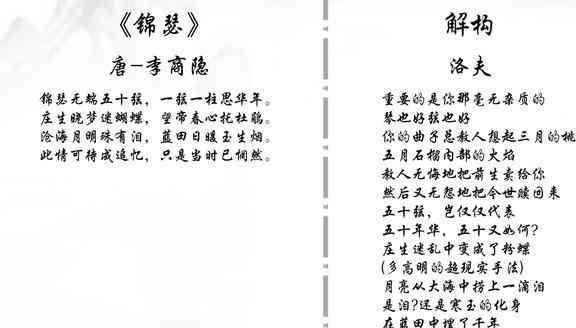 《锦瑟》
唐-李商隐
锦瑟无端五十弦，一弦一柱思华年。
庄生晓梦迷蝴蝶，望帝春心托杜鹃。
沧海月明珠有泪，蓝田日暖玉生烟。
此情可待成追忆，只是当时已惘然。
解构
洛夫
重要的是你那毫无杂质的
琴也好弦也好
你的曲子总教人想起三月的桃
五月石榴内部的火焰
教人无悔地把前生卖给你
然后又无怨地把今世赎回来
五十弦，岂仅仅代表
五十年华，五十又如何?
庄生迷乱中变成了粉蝶
(多高明的超现实手法)
月亮从大海中捞上一滴泪
是泪?还是寒玉的化身
在蓝田中埋了千年